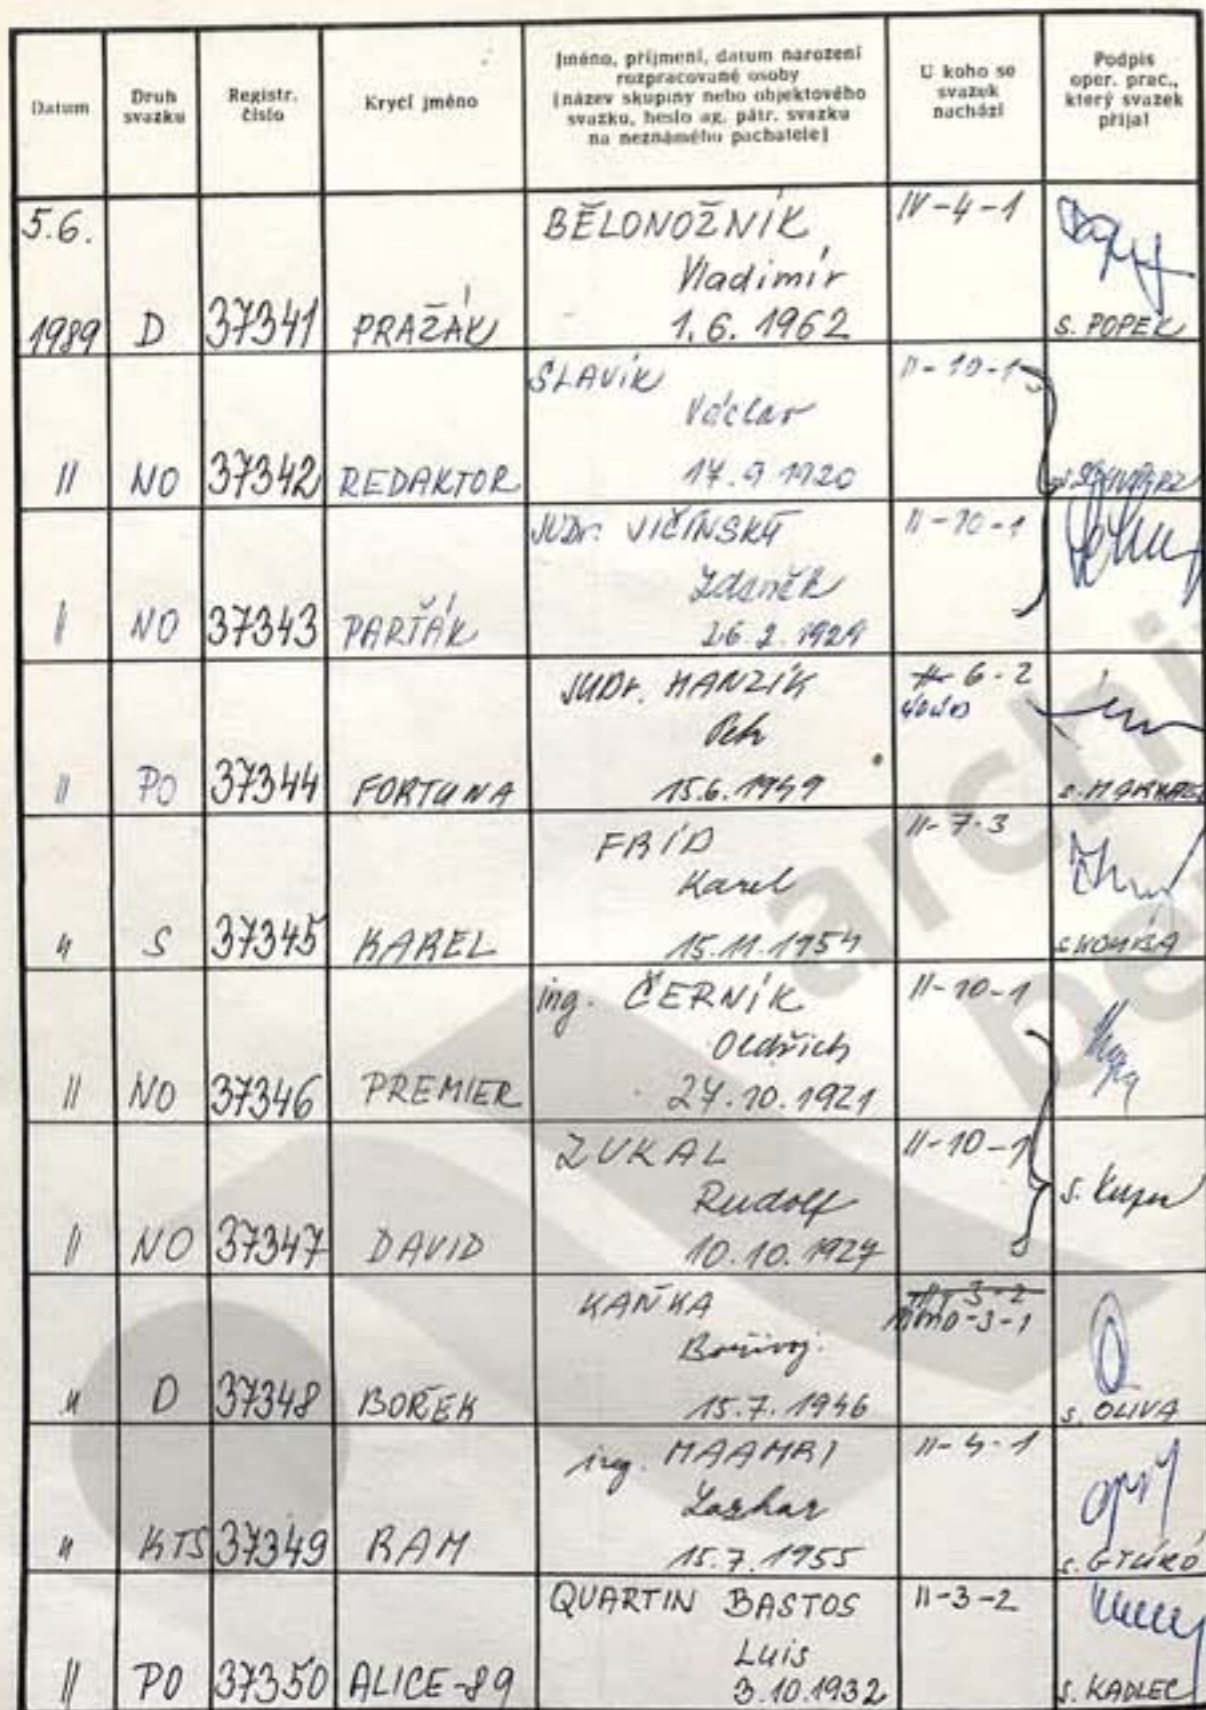 Datum
Druh
svazku
Registr.
číslo
Krycí jméno
Jméno, příjmení, datum narození
rozpracované osoby
(název skupiny nebo objektového
svazku, heslo ag. pátr. svazku
na neznámého pachatele)
U koho se
svazek
nachází
Podpis
oper. prac.,
který svazek
přijal
5.6.
1989 D 37341 PRAŽÁK
BĚLONOŽNÍK
Vladimír
1.6.1962
IV-4-1
S. POPEK
II NO 37342 REDAKTOR
SLAVÍK
Václav
17.9 1920
II-10-1
II NO 37343 PARŤÁK
JUDr. VIČÍNSKÝ
Zdeněk
26.2.1929
II-10-1
II PO 37344 FORTUNA
JUDr. HANZÍK
Petr
15.6.1949
6-2
II S 37345 KAREL
FRÍD
Karel
15.11.1954
II-7-3
II NO 37346 PREMIER
ing. ČERNÍK
Oldřich
27.10.1921
II-10-1
II NO 37347 DAVID
ZUKAL
Rudolf
10.10.1927
II-10-1
II D 37348 BOŘEK
KAŇKA
Bořivoj
15.7.1946
3-2
-3-1
S. OLIVA
II KTS 37349 RAM
ing. MAAMRI
Lazhar
15.7.1955
II-4-1
II PO 37350 ALICE-89
QUARTIN BASTOS
Luis
3.10.1932
II-3-2
S. KADLEC